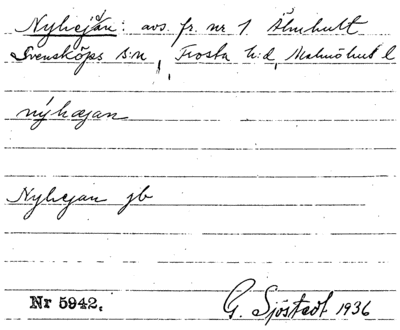 Nyhejan: avs. fr. nr 1 Älmhult
Svensköps s:n, Frosta h:d, Malmöhus l
nýhæjan
Nyhejan jb
Nr 5942.
G. Sjöstedt 1936